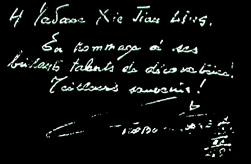 A Madame Xie Tian Ling.
En hommage à ses
brillants talents de décoratrice!
Meilleurs souvenirs!